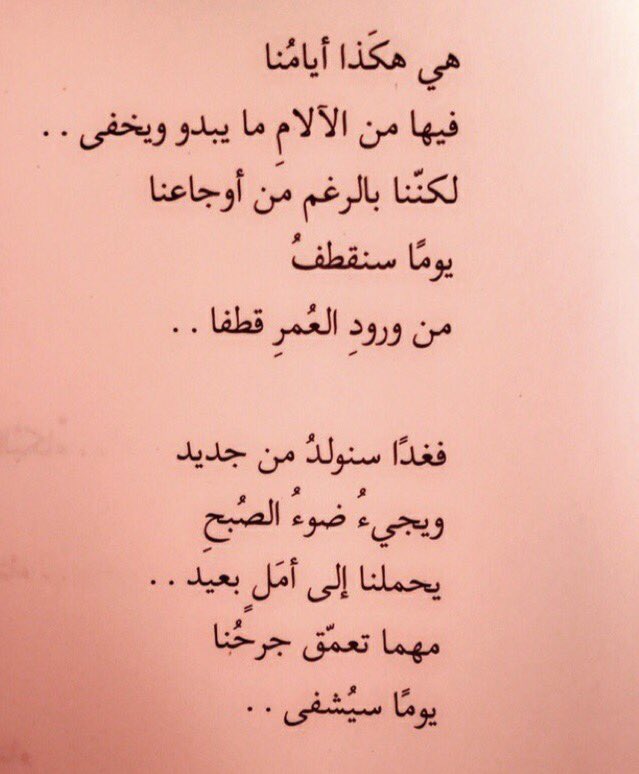 هي هكَذا أيامُنا
فيها من الآلامِ ما يبدو ويخفى . .
لكنّنا بالرغم من أوجاعنا
يومًا سنقطفُ
من ورودِ العُمرِ قطفا . .
فغدًا سنولدُ من جديد
ويجيءُ ضوءُ الصُبحِ
يحملنا إلى أمَلٍ بعيد . .
مهما تعمّق جرحُنا
يومًا سيُشفى . .